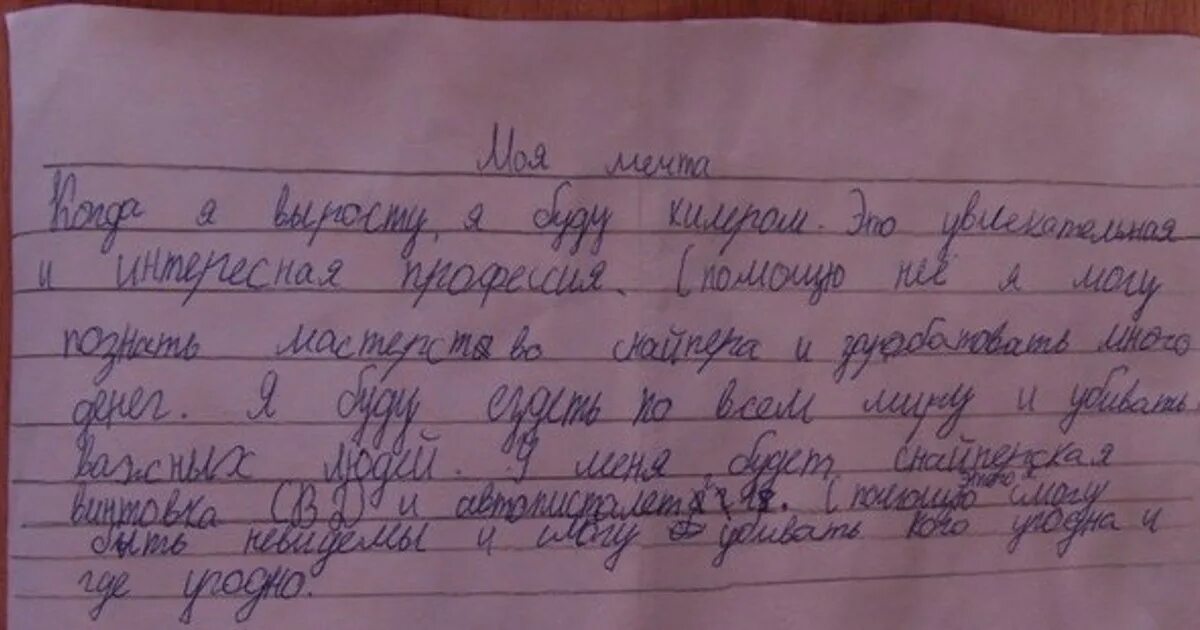 Моя мечта
Когда я выросту, я буду килером. Это увлекательная
и интересная профессия. С помощю неё я могу
познать мастерство снайпера и зарабатовать много
денег. Я буду ездеть по всем миру и убивать
важных людей. У меня будет снайперская
винтовка СВД и автописталет. С помощю этого смогу
быть невидемы и смогу убивать кого угодна и
где угодно.